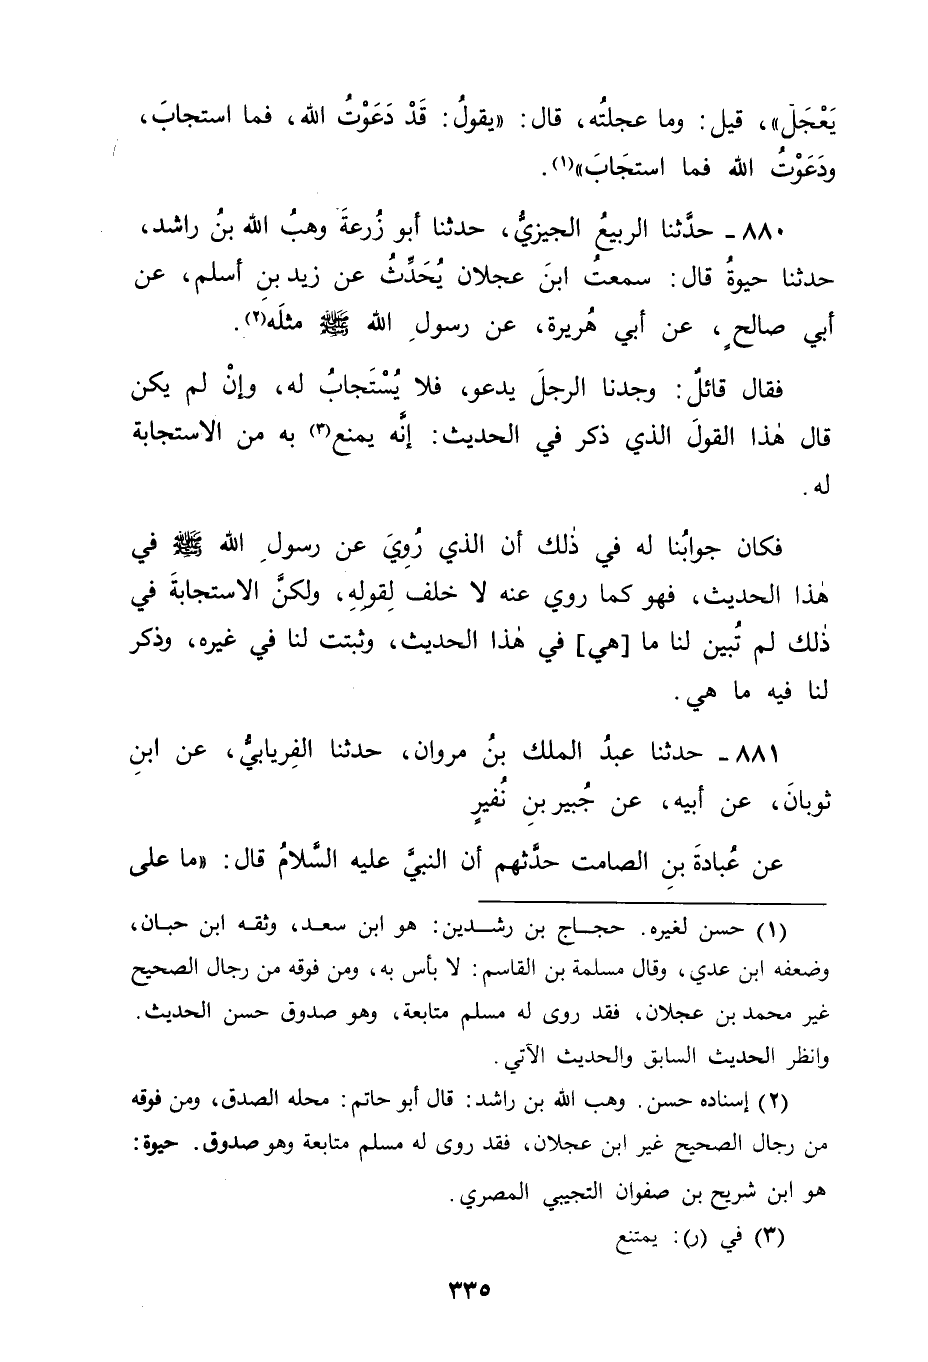 يَعْجَلْ»، قيل: وما عجلتُه، قال: «يقولُ: قَدْ دَعَوْتُ الله، فما استجابَ،
ودَعَوْتُ الله فما استجَابَ»(١).
٨٨٠ ـ حدَّثنا الربيعُ الجيزيُّ، حدثنا أبو زُرعةَ وهبُ الله بنُ راشد،
حدثنا حيوةُ قال: سمعتُ ابنَ عجلان يُحَدِّثُ عن زيد بنِ أسلم، عن
أبي صالحٍ، عن أبي هُريرة، عن رسولِ الله ﷺ مثلَه(٢).
فقال قائلٌ: وجدنا الرجلَ يدعو، فلا يُسْتَجابُ له، وإنْ لم يكن
قال هٰذا القولَ الذي ذكر في الحديث: إنَّه يمنع(٣) به من الاستجابة
له.
فكان جوابُنا له في ذٰلك أن الذي رُوِيَ عن رسولِ الله ﷺ في
هٰذا الحديث، فهو كما روي عنه لا خلف لِقولِهِ، ولكنَّ الاستجابةَ في
ذٰلك لم تُبين لنا ما [هي] في هٰذا الحديث، وثبتت لنا في غيره، وذكر
لنا فيه ما هي.
٨٨١ ـ حدثنا عبدُ الملك بنُ مروان، حدثنا الفِريابيُّ، عن ابنِ
ثوبانَ، عن أبيه، عن جُبير بنِ نُفيرٍ
عن عُبادةَ بنِ الصامت حدَّثهم أن النبيَّ عليه السَّلامُ قال: «ما على
(١) حسن لغيره. حجاج بن رشدين: هو ابن سعد، وثقه ابن حبان،
وضعفه ابن عدي، وقال مسلمة بن القاسم: لا بأس به، ومن فوقه من رجال الصحيح
غير محمد بن عجلان، فقد روى له مسلم متابعة، وهو صدوق حسن الحديث.
وانظر الحديث السابق والحديث الآتي.
(٢) إسناده حسن. وهب الله بن راشد: قال أبو حاتم: محله الصدق، ومن فوقه
من رجال الصحيح غير ابن عجلان، فقد روى له مسلم متابعة وهو صدوق. حيوة:
هو ابن شريح بن صفوان التجيبي المصري.
(٣) في (ر): يمتنع
٣٣٥